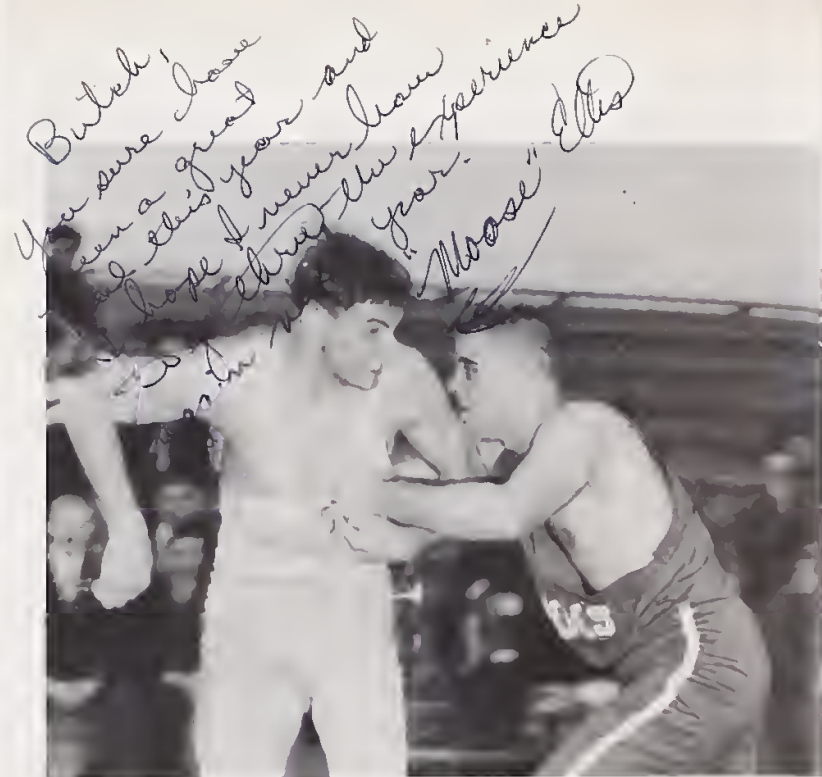 Butch,
You sure have
been a great
this year and
hope I never have
to thru the experience
again year.
"Moose" Ellis
US